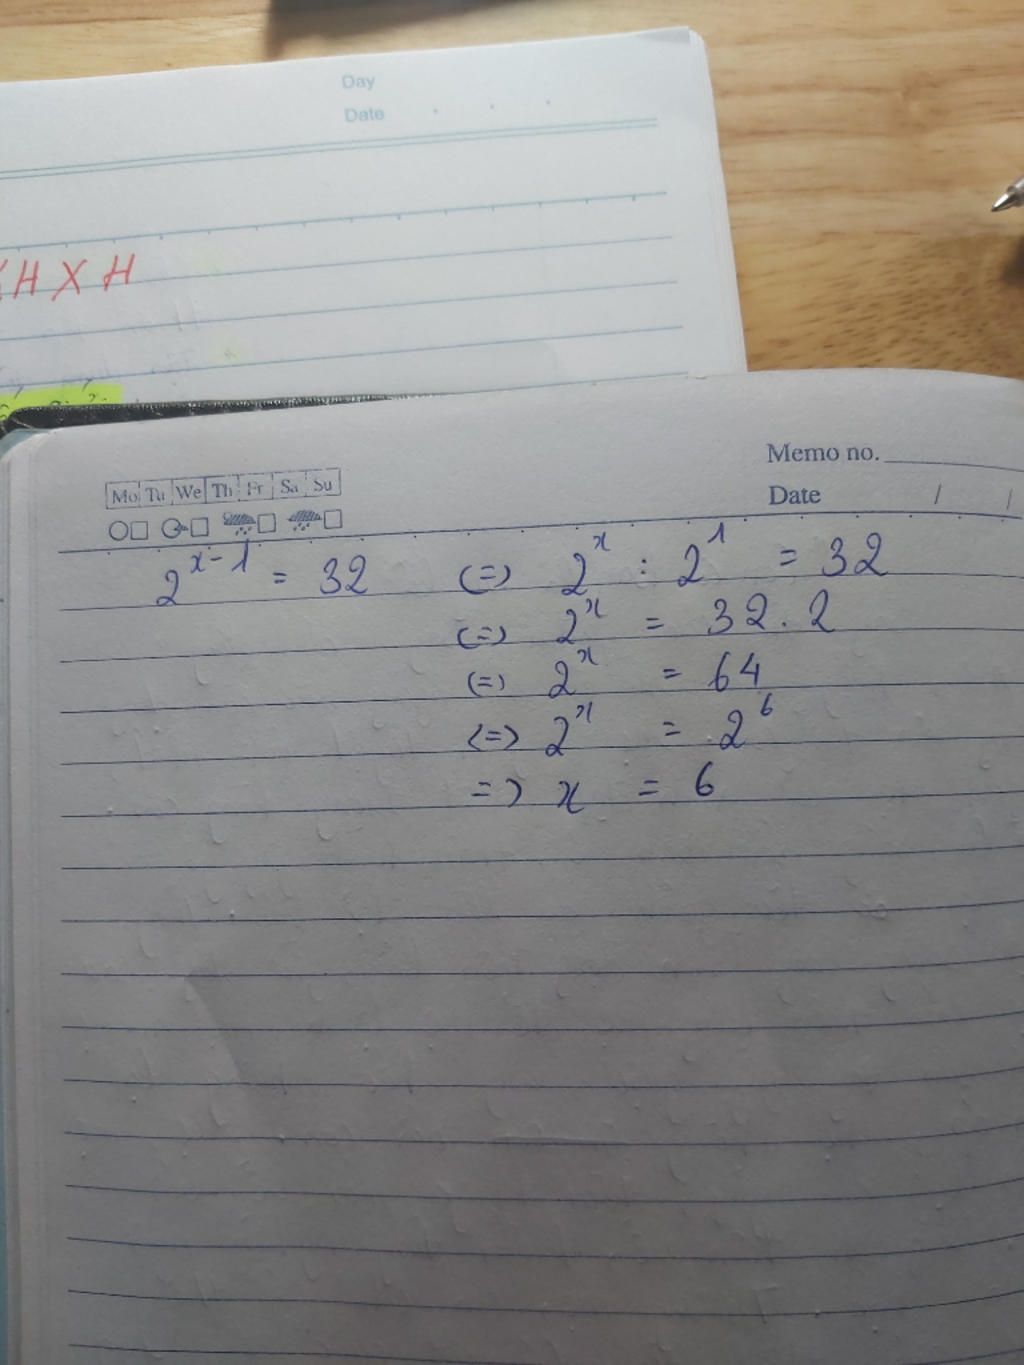 Day
Date
H X H
Memo no.
Mo Tu We Th Fr Sa Su
Date / /
2^{x-1} = 32 (=) 2^x : 2^1 = 32
(=) 2^x = 32.2
(=) 2^x = 64
(=) 2^x = 2^6
=) x = 6